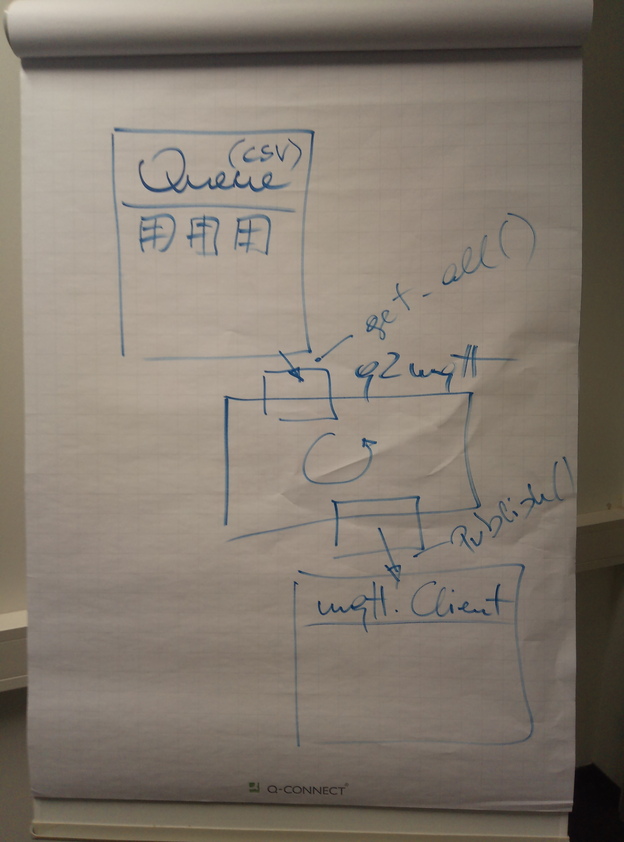 (CSV)
Queue
get_all()
q2mqtt
Publish()
mqtt.Client
Q-CONNECT